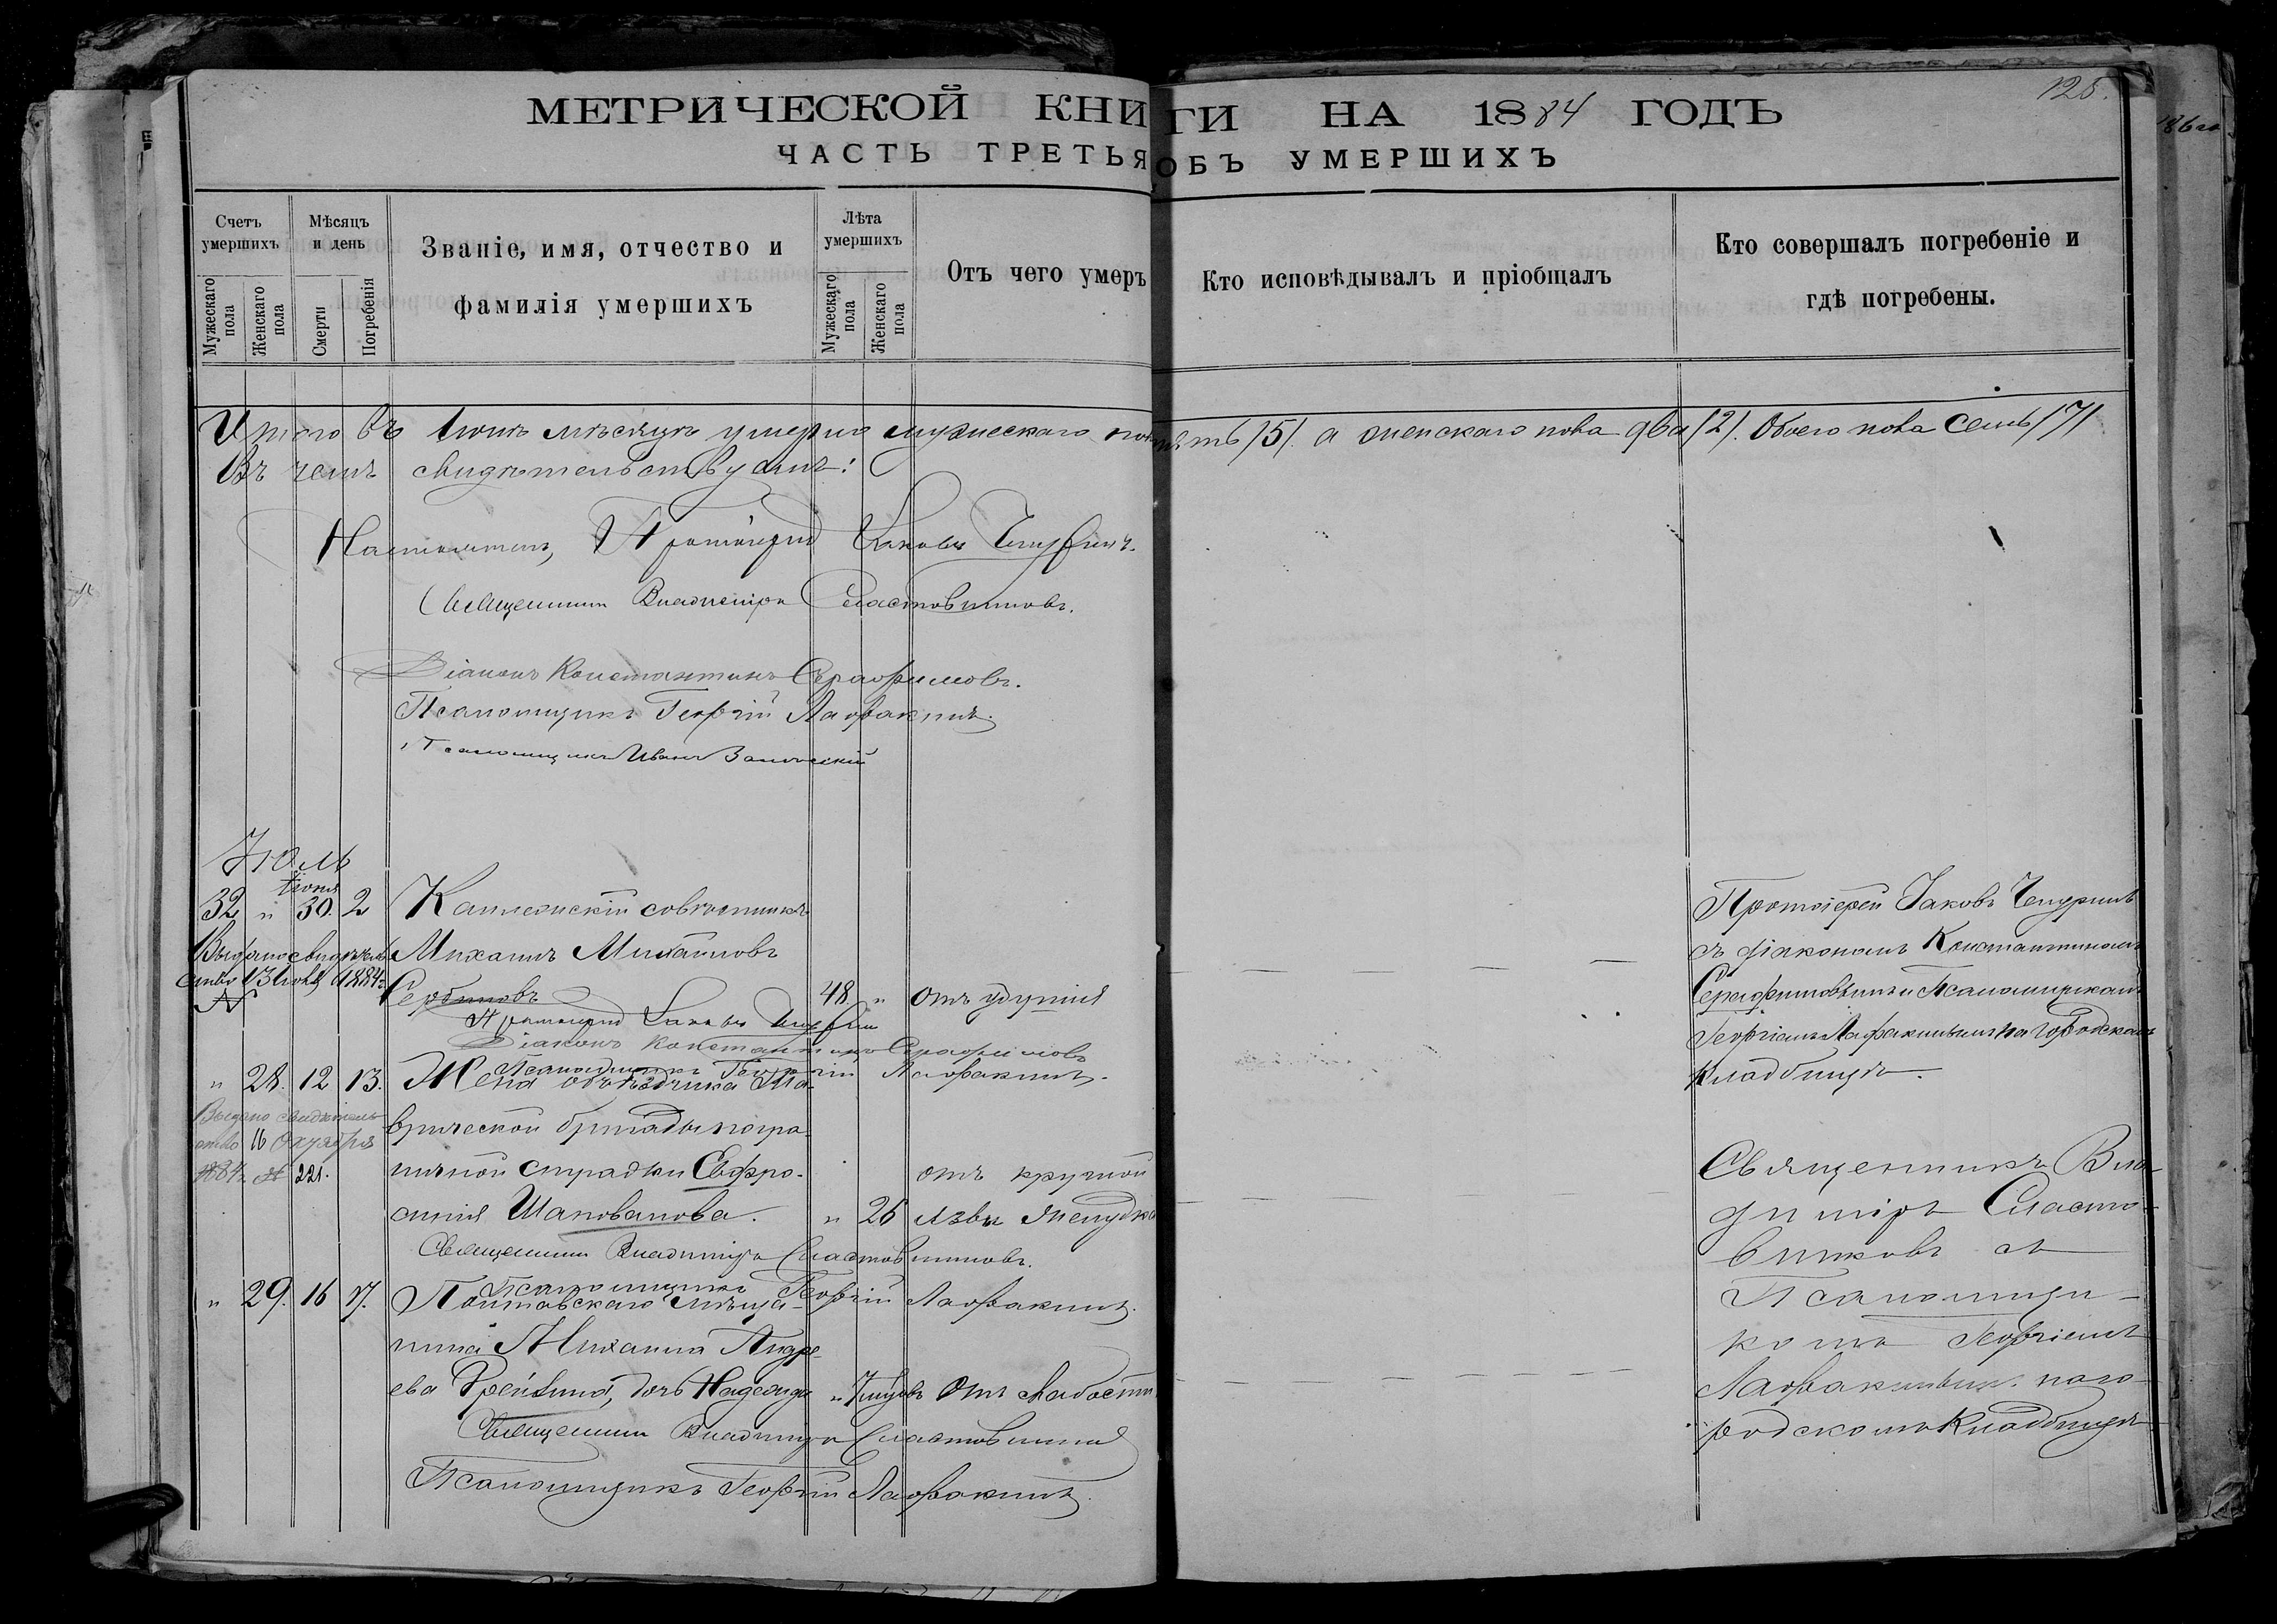 МЕТРИЧЕСКОЙ КНИГИ НА 1884 ГОДЪ
125.
ЧАСТЬ ТРЕТЬЯ ОБЪ УМЕРШИХЪ
Счетъ умершихъ
Мужескаго пола
Женскаго пола
Мѣсяцъ и день
Смерти
Погребенія
Званіе, имя, отчество и
фамилія умершихъ
Лѣта умершихъ
Мужескаго пола
Женскаго пола
Отъ чего умеръ
Кто исповѣдывалъ и пріобщалъ
Кто совершалъ погребеніе и
гдѣ погребены.
Итого въ Іюнѣ мѣсяцѣ умерло мужескаго пола пять /5/. а женскаго пола два /2/. Обоего пола семь /7/
Въ чемъ свидѣтельствуемъ:
Настоятель, Протоіерей Іаковъ Чепуринъ.
Священникъ Владиміръ Сластовниковъ.
Діаконъ Константинъ Серафимовъ.
Псаломщикъ Георгій Лафакинъ.
Псаломщикъ Иванъ
Іюль
32 " Іюня 30. 2 Коллежскій совѣтникъ
Выдано свидѣтель Михаилъ Михайловъ
ство 13 Іюля 1884 г. Сербиновъ 48 " отъ удушія
№
Протоіерей Іаковъ Чепуринъ
Діаконъ Константинъ Серафимовъ
Псаломщикъ Георгій Лафакинъ.
Протоіерей Іаковъ Чепуринъ
съ діакономъ Константиномъ
Серафимовымъ и Псаломщикомъ
Георгіемъ Лафакинымъ на городскомъ
кладбищѣ.
" 28. 12 13. Жена объѣздчика Та-
Выдано свидѣтель
ство 16 Октября
1884 г. № 221.
врической бригады погра-
ничной стражи Евфро-
синія Шаповалова. " 26 отъ круглой
язвы желудка
Священникъ Владиміръ Сластовниковъ.
Псаломщикъ Георгій Лафакинъ.
" 29. 16 17. Полтавскаго мѣща-
нина Михаила Андре-
ева дочь Надежда " 7 мѣсяц. Отъ слабости
Священникъ Владиміръ Сластовниковъ
Псаломщикъ Георгій Лафакинъ.
Священникъ Вла-
диміръ Сласто-
вниковъ съ
Псаломщи-
комъ Георгіемъ
Лафакинымъ. на го-
родскомъ кладбищѣ